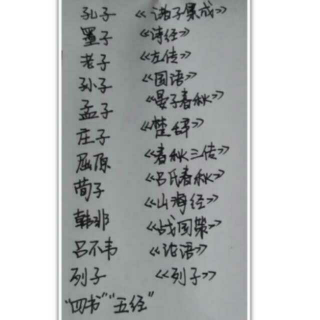 孔子 《诸子集成》
墨子 《诗经》
老子 《左传》
孙子 《国语》
孟子 《晏子春秋》
庄子 《楚辞》
屈原 《春秋三传》
荀子 《吕氏春秋》
韩非 《山海经》
吕不韦 《战国策》
列子 《论语》
《列子》
"四书""五经"